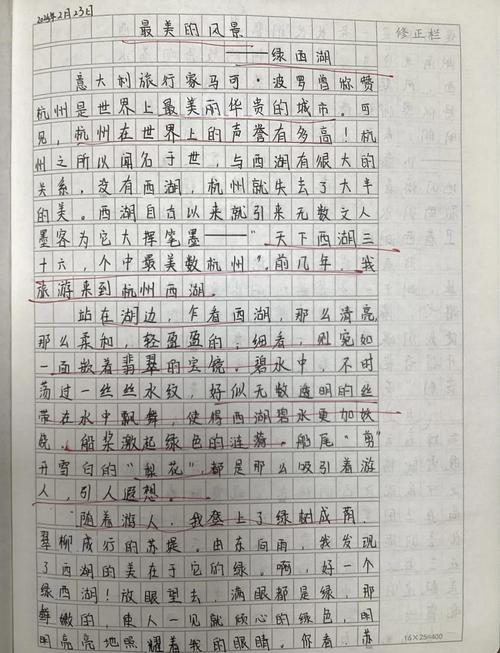 2024年2月23日
最美的风景
修正栏
——绿西湖
意大利旅行家马可·波罗曾称赞
杭州是世界上最美丽华贵的城市。可
见，杭州在世界上的声誉有多高！杭
州之所以闻名于世，与西湖有很大的
关系，没有西湖，杭州就失去了大半
的美。西湖自古以来就引来无数文人
墨客为它大挥笔墨——“天下西湖三
十六，个中最美数杭州”。前几年，我
旅游来到杭州西湖。
站在湖边，乍看西湖，那么清亮
那么柔和，轻盈盈的，细看，则宛如
一面嵌着翡翠的宝镜。碧水中，不时
荡过一丝丝水纹，好似无数透明的丝
带在水中飘舞，使得西湖碧水更加妖
娆，船桨激起绿色的涟漪。船尾“剪”
开雪白的“梨花”，都是那么吸引着游
人，引人遐想。
随着游人，我登上了绿树成荫，
翠柳成行的苏堤。由东向南，我发现
了西湖的美在于它的绿。啊，好一个
绿西湖！放眼望去，满眼都是绿，那
鲜嫩的，使人一见就倾心的绿色，明
明亮亮地照耀着我的眼睛。你看，苏
16×25=400